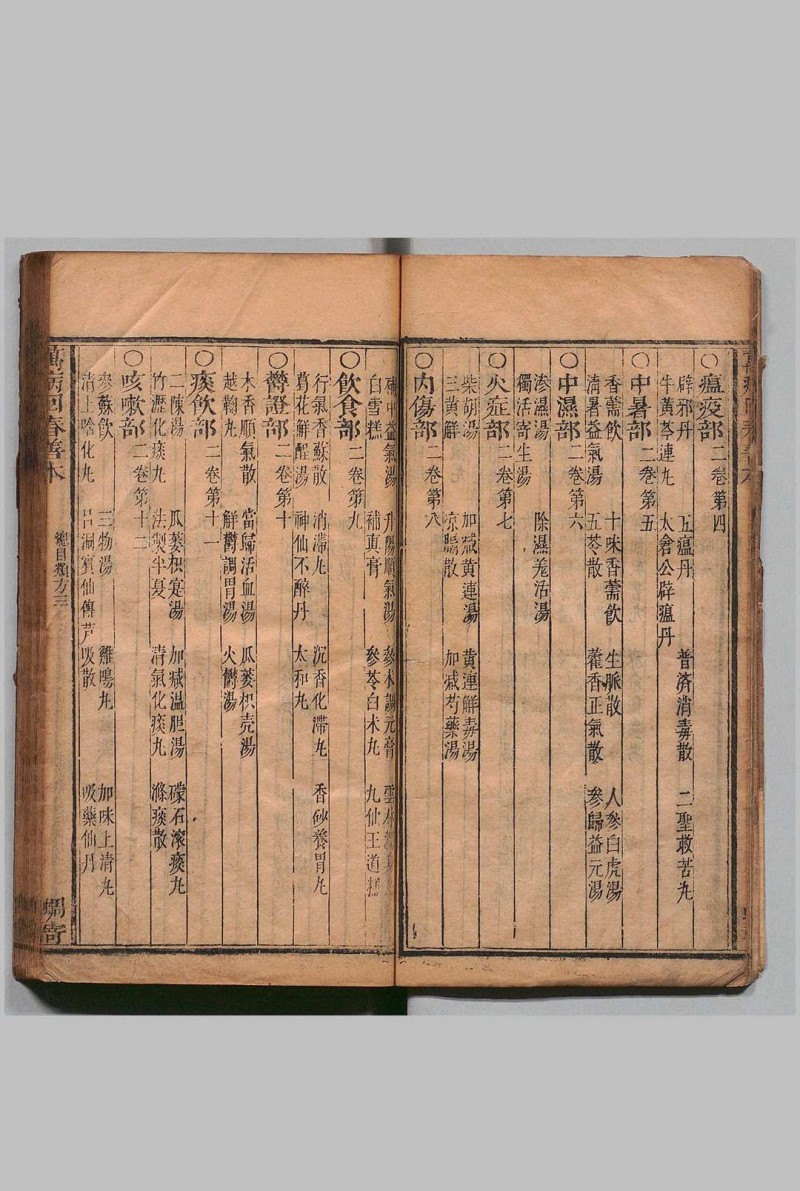 ○瘟疫部 二卷第四
辟邪丹 五瘟丹 普濟消毒散 二聖救苦丸
牛黃芩連丸 太倉公辟瘟丹
○中暑部 二卷第五
香薷飲 十味香薷飲 生脈散 人參白虎湯
清暑益氣湯 五苓散 藿香正氣散 參歸益元湯
○中濕部 二卷第六
滲濕湯 除濕羗活湯
獨活寄生湯
○火症部 二卷第七
柴胡湯 加减黃連湯 黃連解毒湯
三黃解 凉膈散 加减芍藥湯
○內傷部 二卷第八
補中益氣湯 升陽順氣湯 參术調元膏
白雪糕 補真膏 參苓白术丸 九仙王道糕
○飲食部 二卷第九
行氣香蘇散 消滯丸 沉香化滯丸 香砂養胃丸
葛花解酲湯 神仙不醉丹 太和丸
○欝證部 二卷第十
木香順氣散 當歸活血湯 瓜蔞枳壳湯
越鞠丸 解欝調胃湯 火欝湯
○痰飲部 二卷第十一
二陳湯 瓜蔞枳寔湯 加减温胆湯 礞石滾痰丸
竹瀝化痰丸 法製半夏 清氣化痰丸 滌痰散
○咳嗽部 二卷第十二
參蘇飲 三物湯 雞鳴丸 加味上清丸
清上噙化丸 呂洞賓仙傳芦吸散 吸藥仙丹
萬病回春善本 總目類方 三 蝸寄